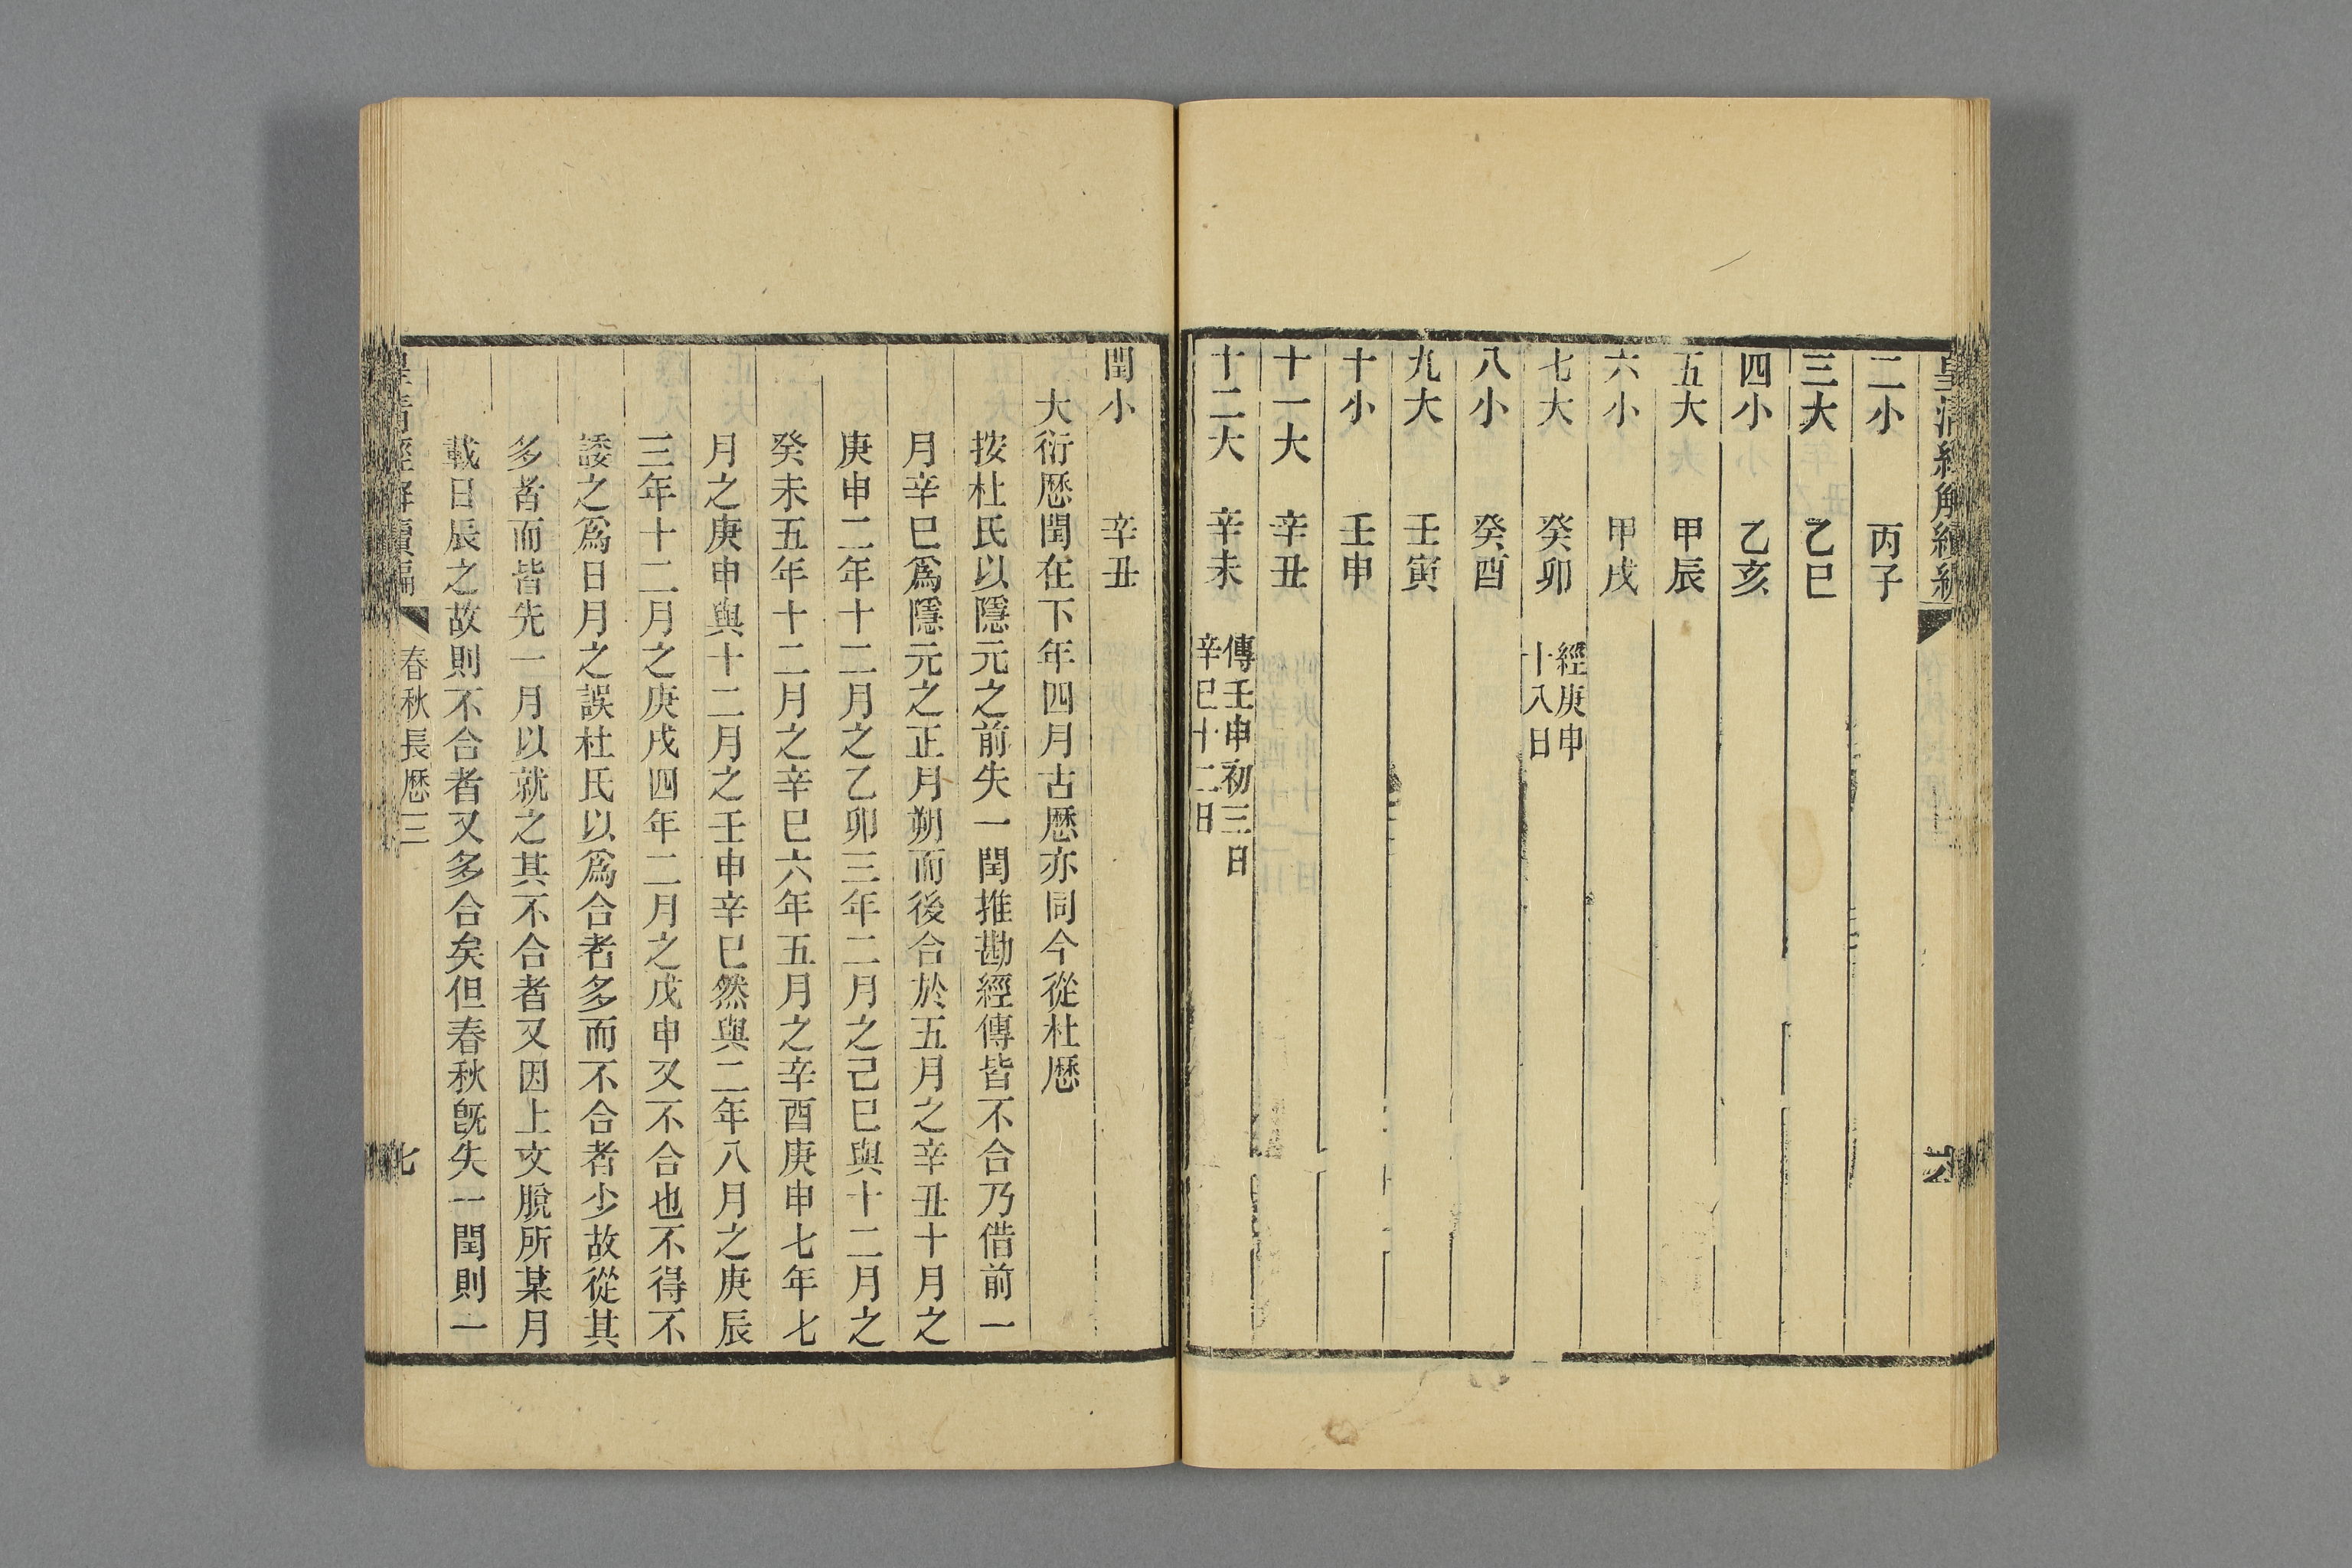 皇清經解續編
二小　丙子
三大　乙巳
四小　乙亥
五大　甲辰
六小　甲戌
七大　癸卯　經庚申
十八日
八小　癸酉
九大　壬寅
十小　壬申
十一大　辛丑
十二大　辛未　傳壬申初三日
辛巳十二日
閏小　辛丑
大衍厯閏在下年四月古厯亦同今從杜厯
按杜氏以隱元之前失一閏推勘經傳皆不合乃借前一
月辛巳爲隱元之正月朔而後合於五月之辛丑十月之
庚申二年十二月之乙卯三年二月之己巳與十二月之
癸未五年十二月之辛巳六年五月之辛酉庚申七年七
月之庚申與十二月之壬申辛巳然與二年八月之庚辰
三年十二月之庚戌四年二月之戊申又不合也不得不
諉之爲日月之誤杜氏以爲合者多而不合者少故從其
多者而皆先一月以就之其不合者又因上文脫所某月
載日辰之故則不合者又多合矣但春秋旣失一閏則一
皇清經解續編　春秋長厯三　七